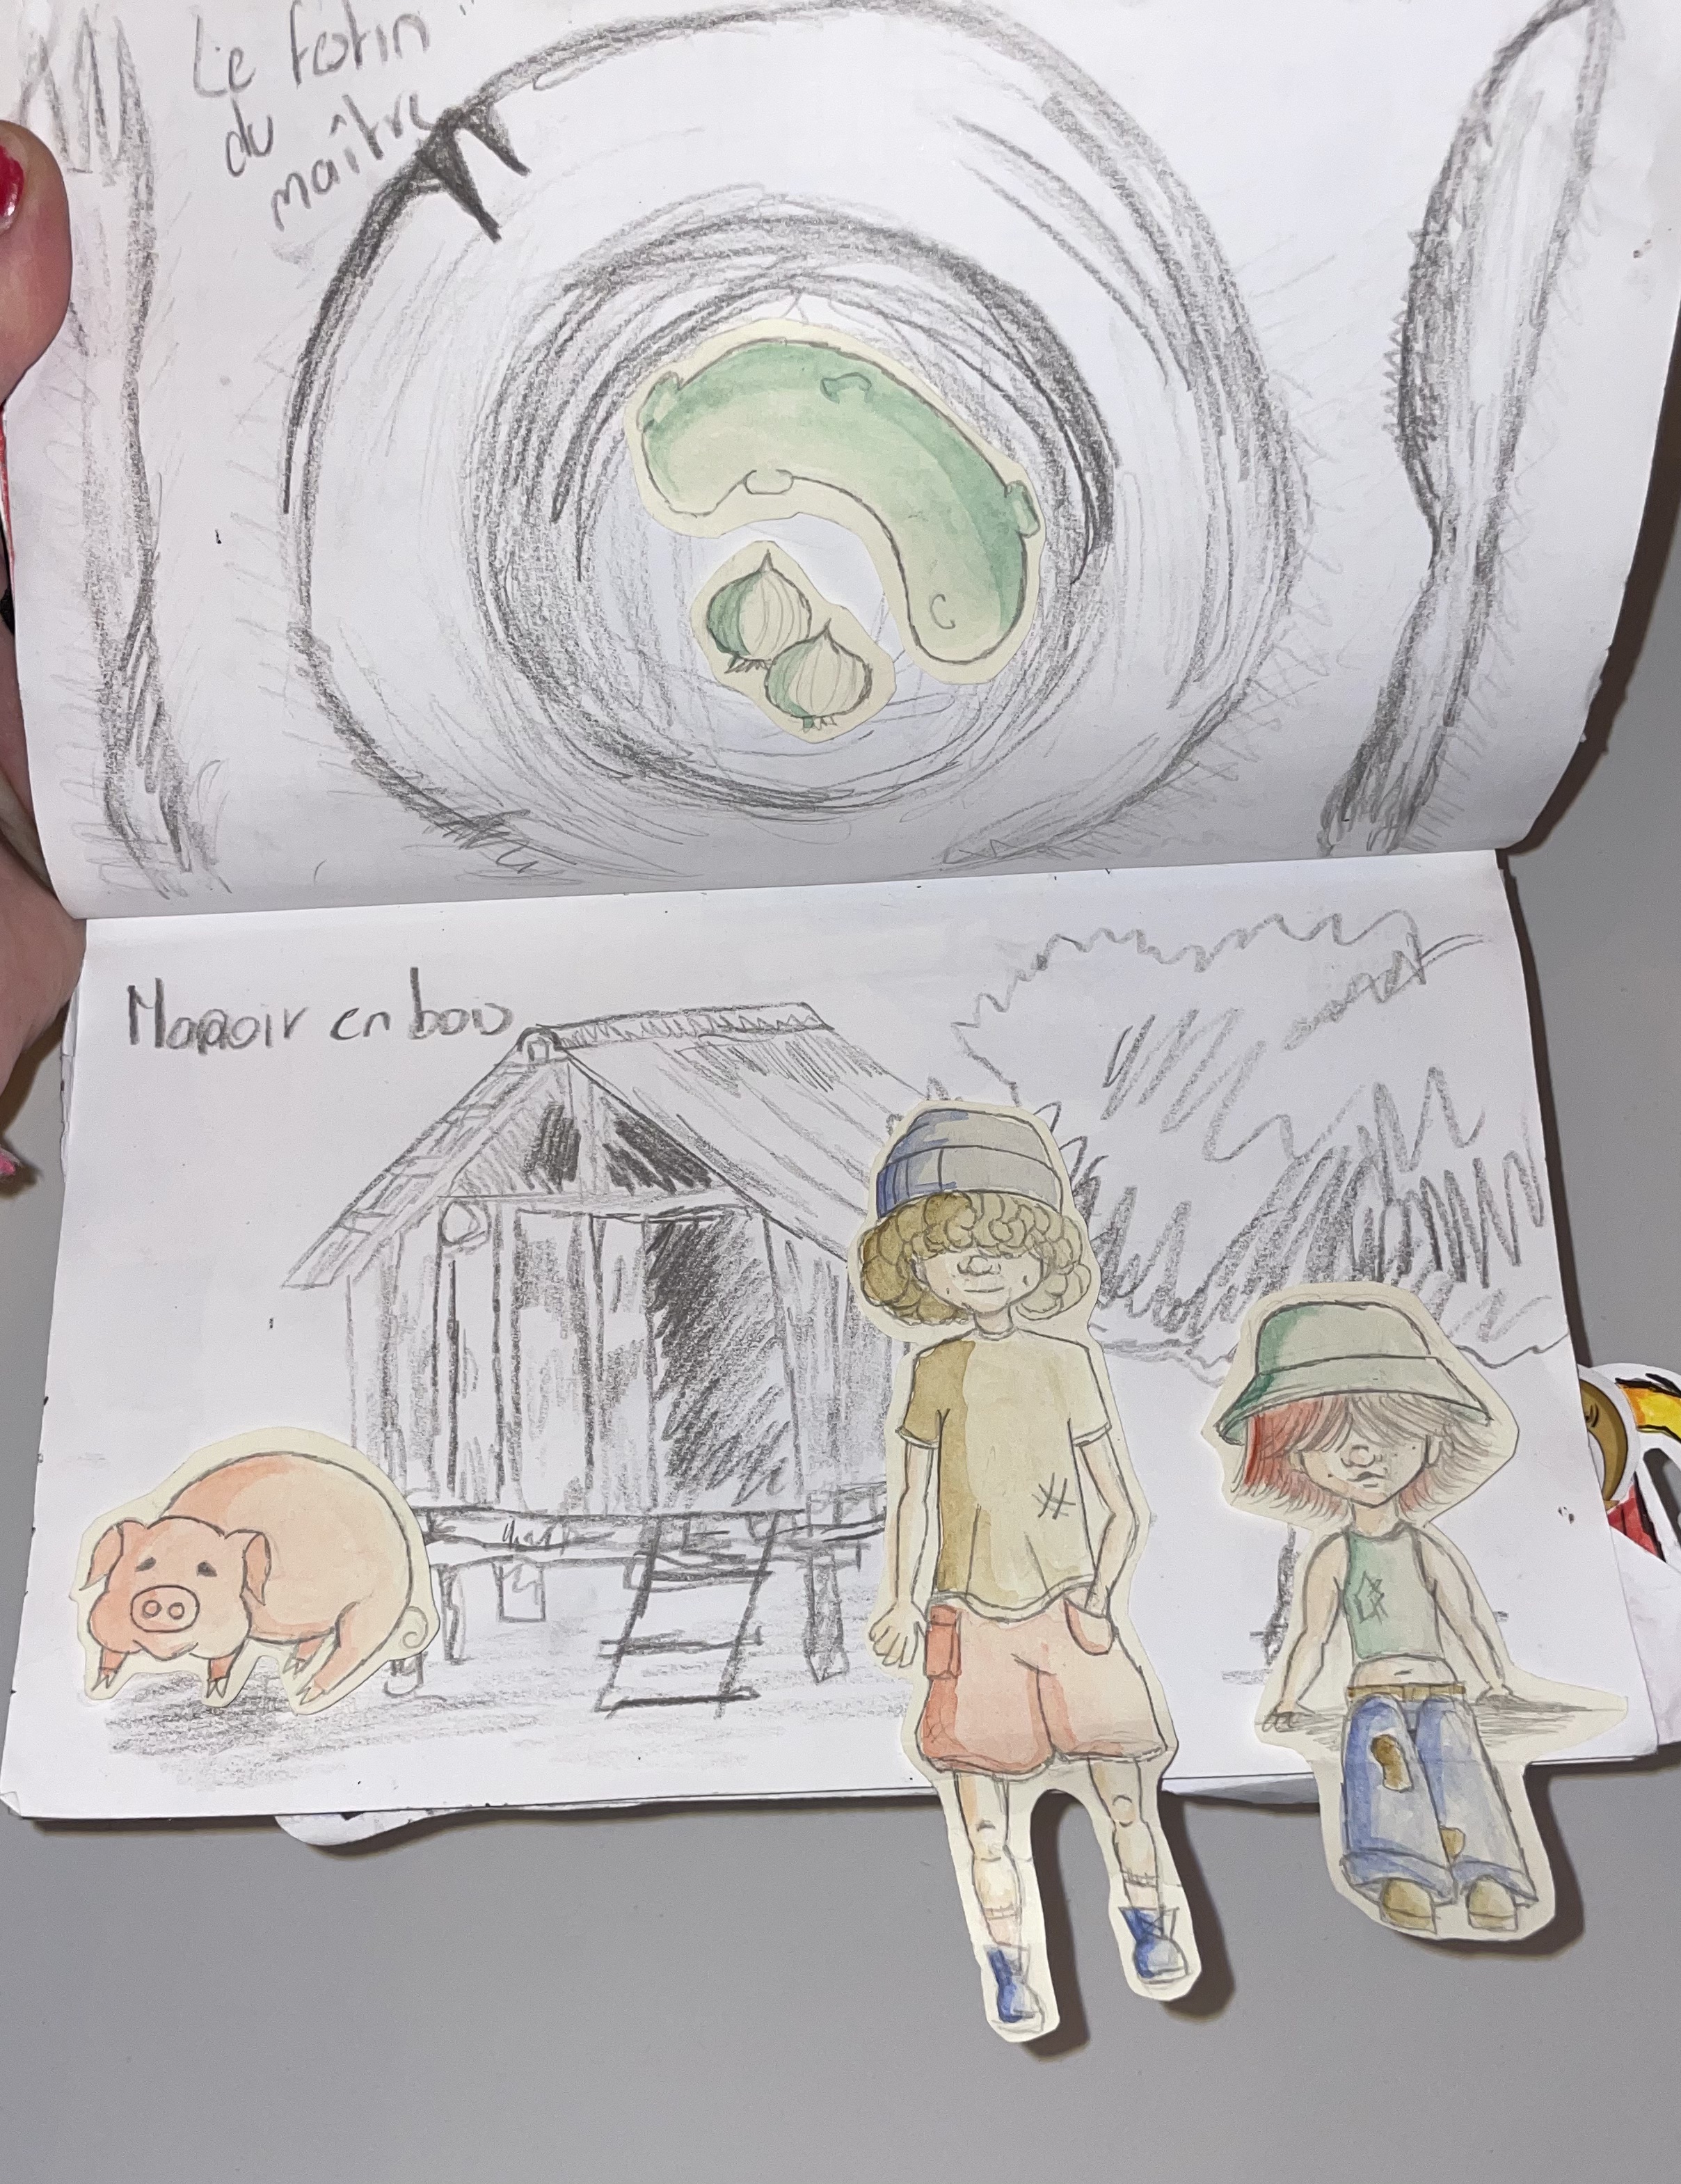 Le festin
du
maître
Manoir en bois